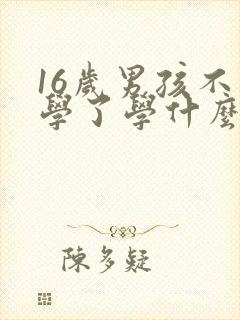 16歲男孩不
學了學什麼
陳多疑